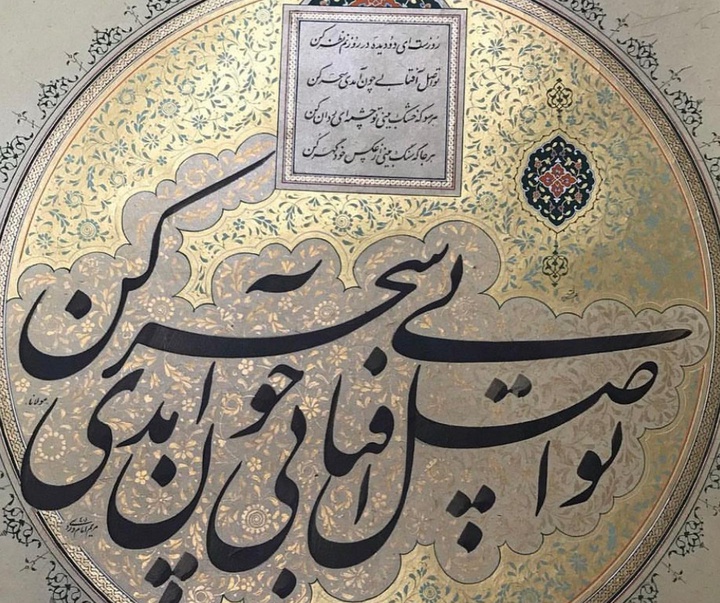 روزست ای دو دیده در روزنم نظر کن
تو اصل آفتابی چون آمدی سحر کن
هر سو که خشک بینی تو چشمه‌ای روان کن
هر جا که سنگ بینی از عکس خود گهر کن
تو اصل آفتابی چون آمدی سحر کن
مولانا